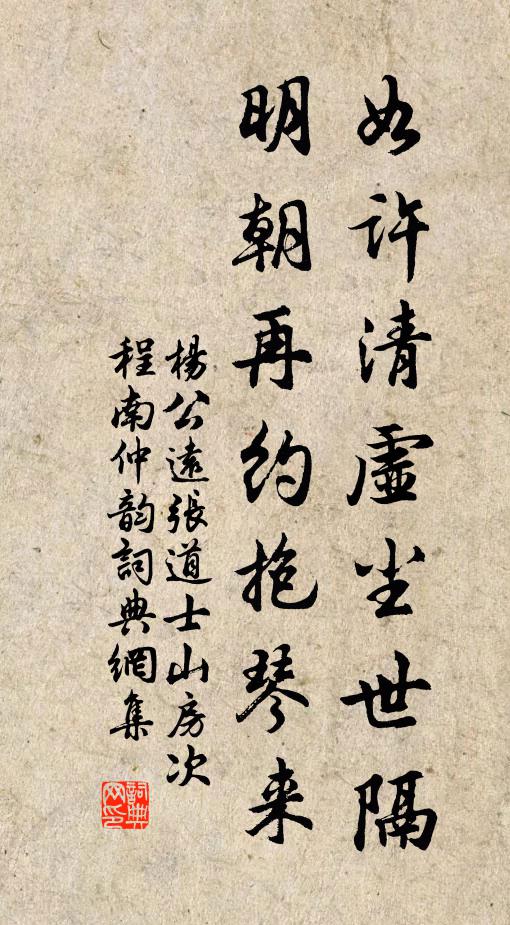 如许清虚尘世隔
明朝再约抱琴来
楊公遠張道士山房次
程南仲韵詞典網集
詞典网印